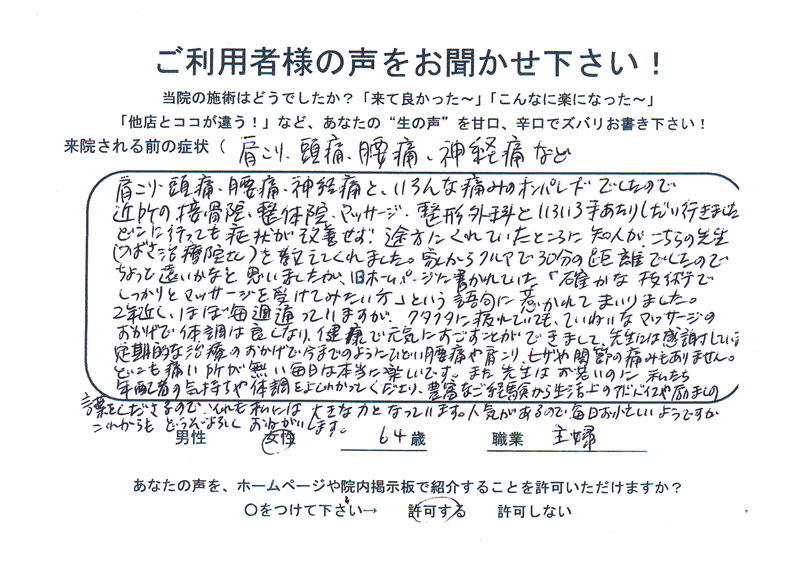 ご利用者様の声をお聞かせ下さい！
当院の施術はどうでしたか？「来て良かった～」「こんなに楽になった～」
「他店とココが違う！」など、あなたの“生の声”を甘口、辛口でズバリお書き下さい！
来院される前の症状（ 肩こり、頭痛、腰痛、神経痛など
肩こり・頭痛・腰痛・神経痛と、いろんな痛みのオンパレードでしたので
近所の接骨院・整体院・マッサージ・整形外科といろいろ手あたりしだい行きました
どこに行っても症状が改善せず、途方にくれていたところに知人が、こちらの先生
(つばさ治療院 )を教えてくれました。家からクルマで30分の距離でしたので
ちょっと遠いかなと思いましたが、旧ホームページに書かれていた「確かな技術で
しっかりとマッサージを受けてみたい方」という語句に惹かれてまいりました。
2年近く、ほぼ毎週通っていますが、クタクタに疲れていても、ていねいなマッサージの
おかげで体調は良くなり、健康で元気にすごすことができまして、先生には感謝してい
定期的な治療のおかげで今までのようにひどい腰痛や肩こり、ヒザや関節の痛みもありません。
どこも痛い所が無い毎日は本当に楽しいです。また先生はお若いのに、私たち
年配者の気持ちや体調をよくわかってくださり、豊富なご経験から生活上のアドバイスや励ましの
言葉をくださるので、それも私には大きな力となっています。人気があるので毎日お忙しいようですが
これからもどうぞよろしくおねがいします。
男性 女性 64歳 職業 主婦
あなたの声を、ホームページや院内掲示板で紹介することを許可いただけますか？
〇をつけて下さい→ 許可する 許可しない